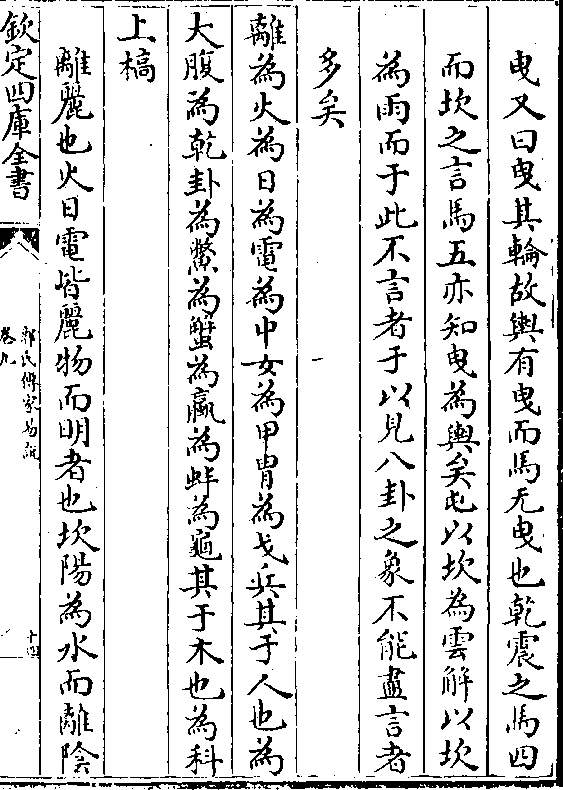 曳又曰曳其輪故輿有曳而馬无曳也乾震之馬四
而坎之言馬五亦知曳為輿矣屯以坎為雲解以坎
為雨而于此不言者于以見八卦之象不能盡言者
多矣
離為火為日為電為中女為甲胄為戈兵其于人也為
大腹為乾卦為鱉為蟹為蠃為蚌為龜其于木也為科
上槁
離麗也火日電皆麗物而明者也坎陽為水而離陰
欽定四庫全書
郭氏傳家易説
卷九
十四